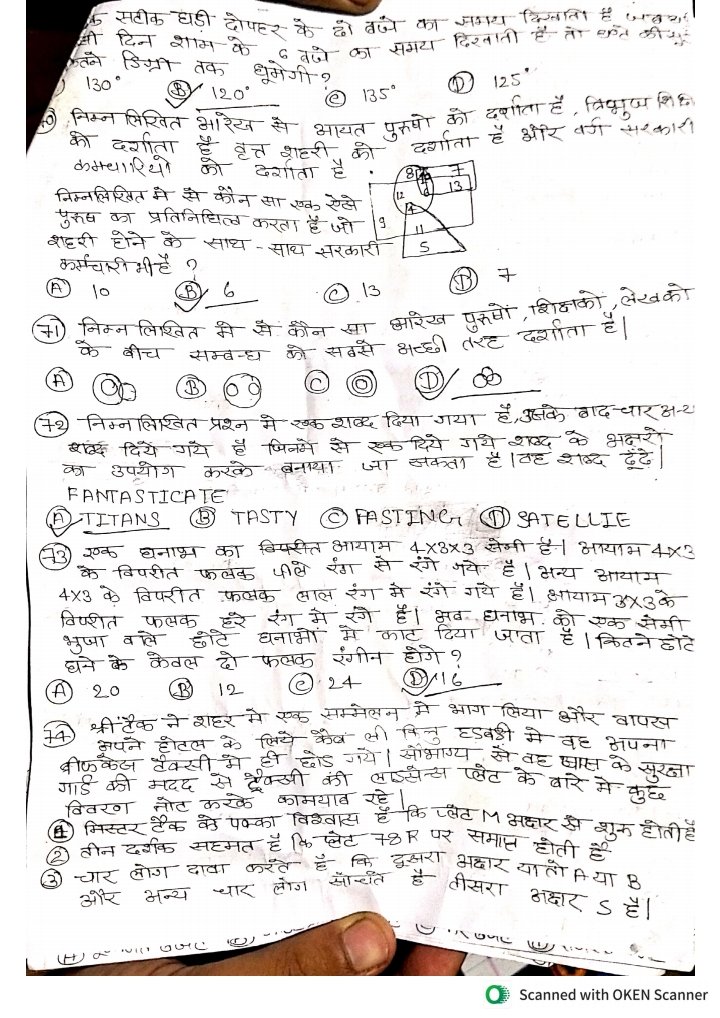 क सटीक घड़ी दोपहर के दो बजे का समय दिखाती है
दिन शाम के 6 बजे का समय दिखाती है तो
कितने डिग्री तक घूमेगी?
130° Ⓑ 120° Ⓒ 135° Ⓓ 125°
निम्न लिखित आरेख से आयत पुरुषो को दर्शाता है, त्रिभुज
को दर्शाता है वृत शहरी को दर्शाता है और वर्ग सरकारी
कर्मचारियो को दर्शाता है .
8 7
12 6 13
4
9
11
5
निम्नलिखित मे से कौन सा एक ऐसे
पुरुष का प्रतिनिधित्व करता है जो
शहरी होने के साथ-साथ सरकारी
कर्मचारी भी है ?
Ⓐ 10 Ⓑ 6 Ⓒ 13 Ⓓ 7
71 निम्न लिखित मे से कौन सा आरेख पुरुषों, शिक्षको, लेखको
के बीच सम्बन्ध को सबसे अच्छी तरह दर्शाता है|
Ⓐ Ⓑ Ⓒ Ⓓ
72 निम्न लिखित प्रश्न मे एक शब्द दिया गया है, उसके बाद चार अन्य
शब्द दिये गये है जिनमे से एक दिये गये शब्द के अक्षरो
का उपयोग करके बनाया जा सकता है | वह शब्द ढूंढे|
FANTASTICATE
Ⓐ TITANS Ⓑ TASTY Ⓒ FASTING Ⓓ SATELLIE
73 एक घनाभ का विपरीत आयाम 4x3x3 सेमी है| आयाम 4x3
के विपरीत फलक पीले रंग से रंगे गये है| अन्य आयाम
4x3 के विपरीत फलक लाल रंग मे रंगे गये है| आयाम 3x3 के
विपरीत फलक हरे रंग मे रंगे है| अब घनाभ को एक सेमी
भुजा वाले छोटे घनाभो मे काट दिया जाता है| कितने छोटे
घने के केवल दो फलक रंगीन होगे ?
Ⓐ 20 Ⓑ 12 Ⓒ 24 Ⓓ 16
74 श्री टैक ने शहर मे एक सम्मेलन मे भाग लिया और वापस
अपने होटल के लिये कैब ली किन्तु हडबडी मे वह अपना
ब्रीफकेज टैक्सी मे ही छोड गये| सौभाग्य से वह पास के सुरक्षा
गार्ड की मदद से टैक्सी की लाइसेन्स प्लेट के बारे मे कुछ
विवरण नोट करके कामयाब रहे|
① मिस्टर टैक के पक्का विश्वास है कि प्लेट M अक्षर से शुरू होती है
② तीन दर्शक सहमत है कि प्लेट 78R पर समाप्त होती है
③ चार लोग दावा करते है कि दूसरा अक्षर या तो A या B
और अन्य चार लोग सोचते है तीसरा अक्षर S है|
Scanned with OKEN Scanner